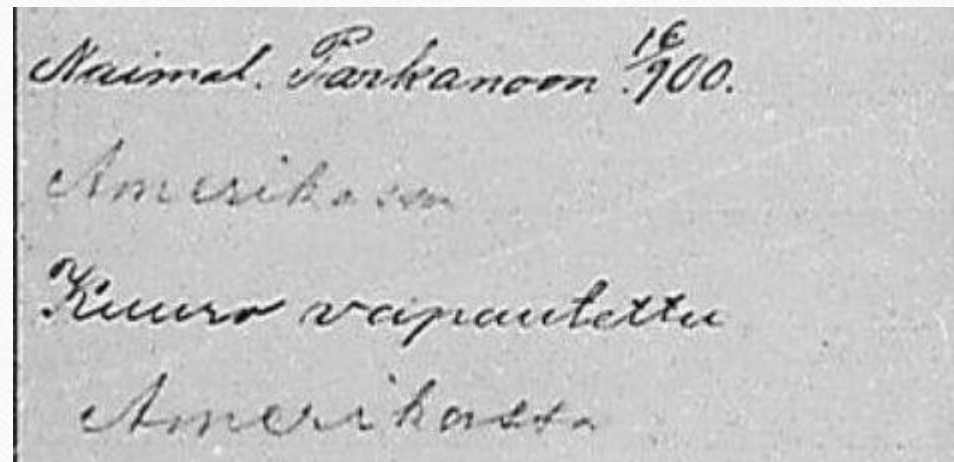 Naimal. Parkanoon 16/900.
Amerikassa
Kuuro vapautettu
Amerikassa